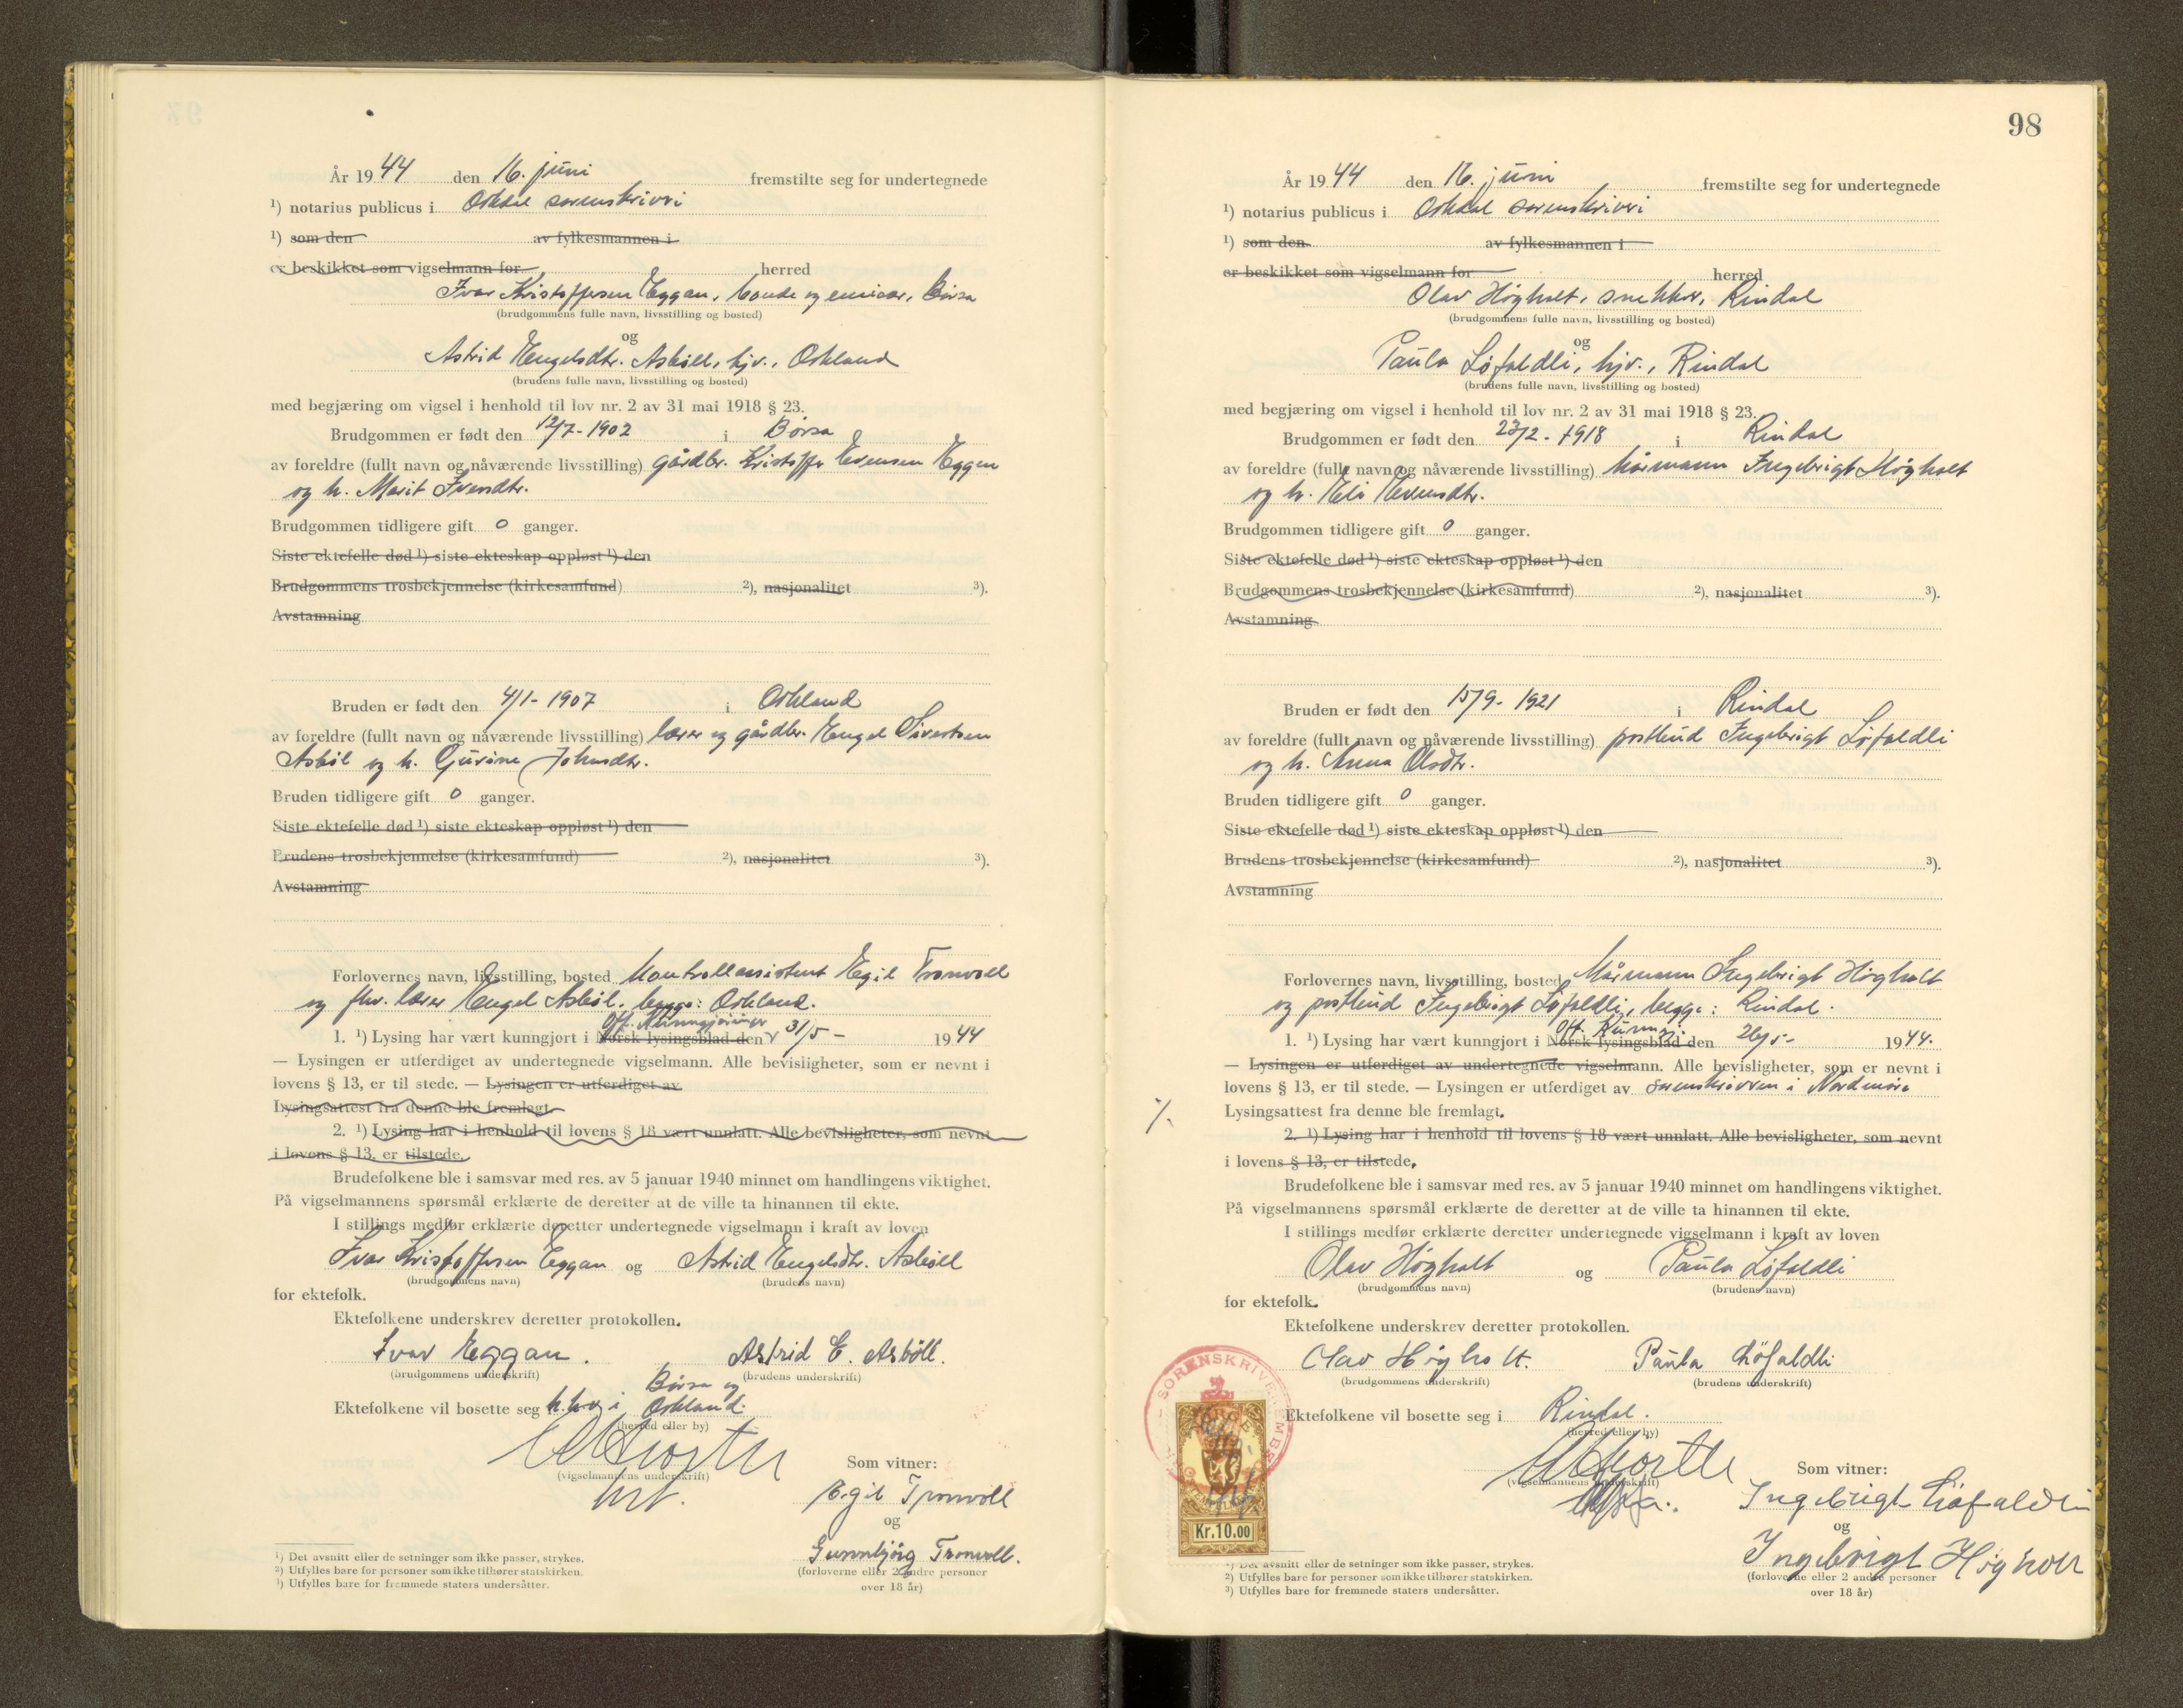 År 1944 den 16. juni fremstilte seg for undertegnede
¹) notarius publicus i Orkdal sorenskriveri
¹) som den av fylkesmannen i
er beskikket som vigselmann for herred
Ivar Kristoffersen Eggan, bonde og , Börsa
(brudgommens fulle navn, livsstilling og bosted)
og
Astrid Engelsdtr. Asböll, hjv., Orkland
(brudens fulle navn, livsstilling og bosted)
med begjæring om vigsel i henhold til lov nr. 2 av 31 mai 1918 § 23.
Brudgommen er født den 12/7-1902 i Börsa
av foreldre (fullt navn og nåværende livsstilling) gårdbr. Kristoffer Evensen Eggen
og h. Marit Iversdtr.
Brudgommen tidligere gift 0 ganger.
Siste ektefelle død ¹) siste ekteskap oppløst ¹) den
Brudgommens trosbekjennelse (kirkesamfund) ²), nasjonalitet ³).
Avstamning
Bruden er født den 4/1-1907 i Orkland
av foreldre (fullt navn og nåværende livsstilling) lærer og gårdbr. Engel Sivertsen
Asböl og h. Gurine Johnsdtr.
Bruden tidligere gift 0 ganger.
Siste ektefelle død ¹) siste ekteskap oppløst ¹) den
Brudens trosbekjennelse (kirkesamfund) ²), nasjonalitet ³).
Avstamning
Forlovernes navn, livsstilling, bosted Kontrollassistent Egil Tronvoll
og fhv. lærer Engel Asböl, begge: Orkland.
Off. Kunngjöringer
1. ¹) Lysing har vært kunngjort i Norsk lysingsblad den 31/5 - 1944
— Lysingen er utferdiget av undertegnede vigselmann. Alle bevisligheter, som er nevnt i
lovens § 13, er til stede. — Lysingen er utferdiget av
Lysingsattest fra denne ble fremlagt.
2. ¹) Lysing har i henhold til lovens § 18 vært unnlatt. Alle bevisligheter, som nevnt
i lovens § 13, er tilstede.
Brudefolkene ble i samsvar med res. av 5 januar 1940 minnet om handlingens viktighet.
På vigselmannens spørsmål erklærte de deretter at de ville ta hinannen til ekte.
I stillings medfør erklærte deretter undertegnede vigselmann i kraft av loven
Ivar Kristoffersen Eggan og Astrid Engelsdtr. Asböll
(brudgommens navn) (brudens navn)
for ektefolk.
Ektefolkene underskrev deretter protokollen.
Ivar Eggan. Astrid E. Asböll.
(brudgommens underskrift) (brudens underskrift)
Börsa og
Ektefolkene vil bosette seg h.hv. i Orkland.
(herred eller by)
(vigselmannens underskrift)
Som vitner:
Egil Tronvoll
og
Gunnbjörg Tronvoll.
(forloverne eller 2 andre personer
over 18 år)
¹) Det avsnitt eller de setninger som ikke passer, strykes.
²) Utfylles bare for personer som ikke tilhører statskirken.
³) Utfylles bare for fremmede staters undersåtter.
98
År 1944 den 16. juni fremstilte seg for undertegnede
¹) notarius publicus i Orkdal sorenskriveri
¹) som den av fylkesmannen i
er beskikket som vigselmann for herred
Olav Högholt, snekker, Rindal
(brudgommens fulle navn, livsstilling og bosted)
og
Paula Löfaldli, hjv., Rindal
(brudens fulle navn, livsstilling og bosted)
med begjæring om vigsel i henhold til lov nr. 2 av 31 mai 1918 § 23.
Brudgommen er født den 23/2-1918 i Rindal
av foreldre (fullt navn og nåværende livsstilling) Ingebrigt Högholt
og h. Eli Evensdtr.
Brudgommen tidligere gift 0 ganger.
Siste ektefelle død ¹) siste ekteskap oppløst ¹) den
Brudgommens trosbekjennelse (kirkesamfund) ²), nasjonalitet ³).
Avstamning
Bruden er født den 15/9-1921 i Rindal
av foreldre (fullt navn og nåværende livsstilling) postbud Ingebrigt Löfaldli
og h. Anna Olsdtr.
Bruden tidligere gift 0 ganger.
Siste ektefelle død ¹) siste ekteskap oppløst ¹) den
Brudens trosbekjennelse (kirkesamfund) ²), nasjonalitet ³).
Avstamning
Forlovernes navn, livsstilling, bosted Ingebrigt Högholt
og postbud Ingebrigt Löfaldli, begge: Rindal.
Off. Kunngj.
1. ¹) Lysing har vært kunngjort i Norsk lysingsblad den 26/5- 1944.
— Lysingen er utferdiget av undertegnede vigselmann. Alle bevisligheter, som er nevnt i
lovens § 13, er til stede. — Lysingen er utferdiget av sorenskriveren i Nordmöre
Lysingsattest fra denne ble fremlagt.
2. ¹) Lysing har i henhold til lovens § 18 vært unnlatt. Alle bevisligheter, som nevnt
i lovens § 13, er tilstede.
Brudefolkene ble i samsvar med res. av 5 januar 1940 minnet om handlingens viktighet.
På vigselmannens spørsmål erklærte de deretter at de ville ta hinannen til ekte.
I stillings medfør erklærte deretter undertegnede vigselmann i kraft av loven
Olav Högholt og Paula Löfaldli
(brudgommens navn) (brudens navn)
for ektefolk.
Ektefolkene underskrev deretter protokollen.
Olav Högholt. Paula Löfaldli
(brudgommens underskrift) (brudens underskrift)
Ektefolkene vil bosette seg i Rindal.
(herred eller by)
(vigselmannens underskrift)
Som vitner:
Ingebrigt Löfaldli
og
Ingebrigt Högholt
(forloverne eller 2 andre personer
over 18 år)
SORENSKRIVEREMBE
NORGE
Kr.10.00
¹) Det avsnitt eller de setninger som ikke passer, strykes.
²) Utfylles bare for personer som ikke tilhører statskirken.
³) Utfylles bare for fremmede staters undersåtter.